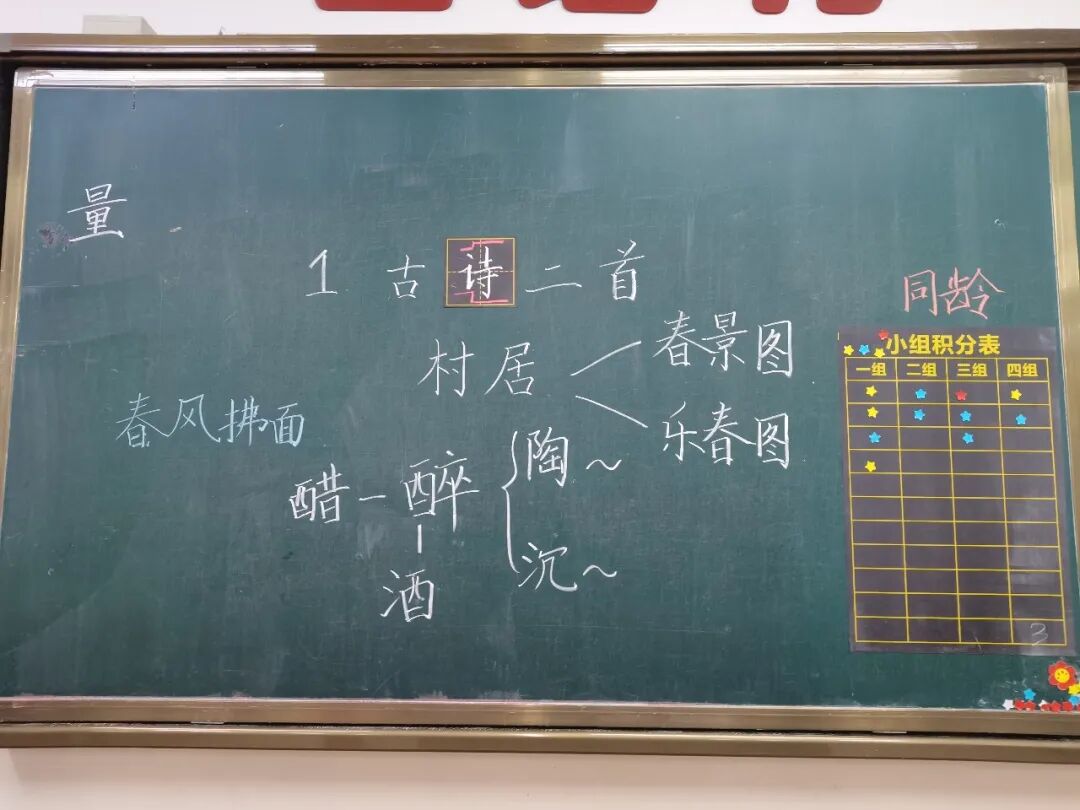 量
1 古诗二首
村居
春景图
乐春图
春风拂面
醋－醉
陶～
沉～
酒
同龄
小组积分表
一组 二组 三组 四组
3